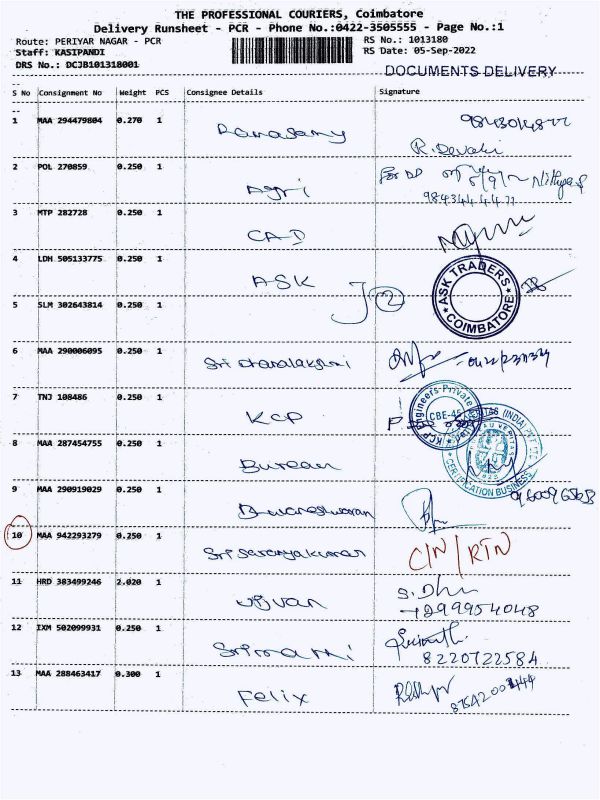 THE PROFESSIONAL COURIERS, Coimbatore
Delivery Runsheet - PCR - Phone No.:0422-3505555 - Page No.:1
Route: PERIYAR NAGAR - PCR RS No.: 1013180
Staff: KASIPANDI RS Date: 05-Sep-2022
DRS No.: DCJB101318001
DOCUMENTS DELIVERY
S No Consignment No Weight PCS Consignee Details Signature
1 MAA 294479804 0.270 1 Ramasamy
R. Devaki
2 POL 270859 0.250 1 Agri
3 MTP 282728 0.250 1 CAD
4 LDH 505133775 0.250 1 ASK
ASK TRADERS COIMBATORE
5 SLM 302643814 0.250 1 2
6 MAA 290006095 0.250 1
7 TNJ 108486 0.250 1 KCP
KCP Engineers Private CBE-45
8 MAA 287454755 0.250 1 Bureau
CERTIFICATION BUSINESS
9 MAA 290919029 0.250 1
10 MAA 942293279 0.250 1 Sri Saranyakumar C/N / RTN
11 HRD 383499246 2.020 1 S. Dhu
12 IXM 502099931 0.250 1
8220722584
13 MAA 288463417 0.300 1 Felix